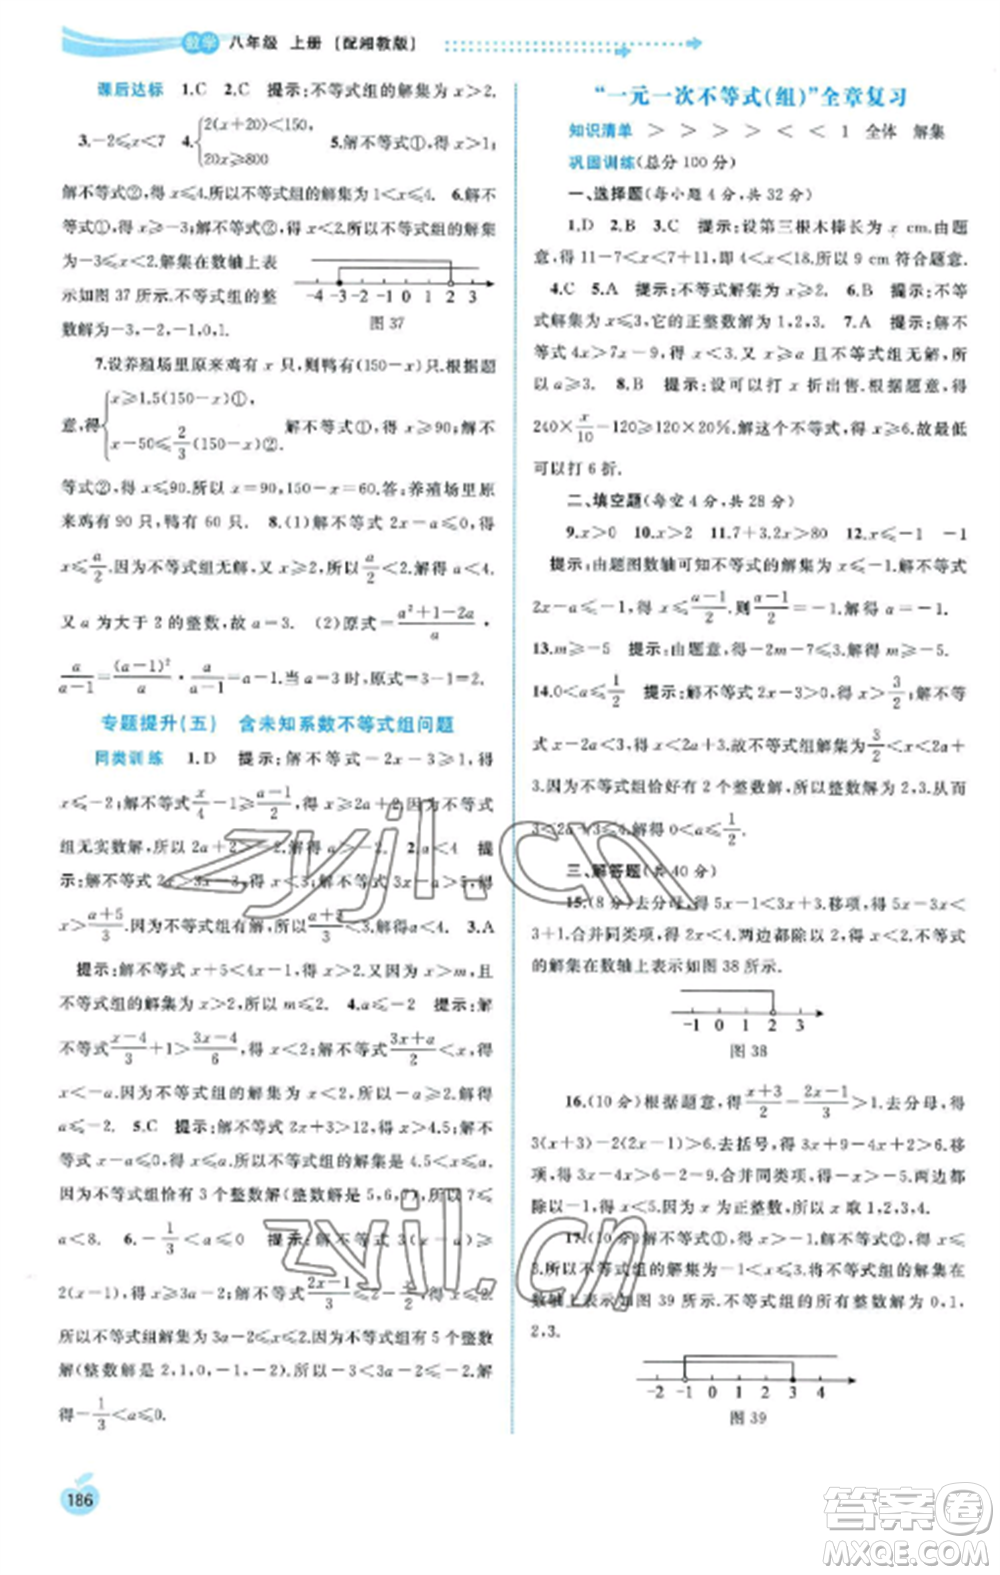 数学 八年级 上册 [配湘教版]
课后达标 1.C 2.C 提示:不等式组的解集为x>2.
3.-2≤x<7 4.{2(x+20)<150, 20x≥800 5.解不等式①,得x>1;
解不等式②,得x≤4.所以不等式组的解集为1<x≤4. 6.解
不等式①,得x≥-3;解不等式②,得x<2.所以不等式组的解集为
-3≤x<2.解集在数轴上表
示如图37所示.不等式组的整
数解为-3,-2,-1,0,1.
-4 -3 -2 -1 0 1 2 3
图37
7.设养殖场里原来鸡有x只,则鸭有(150-x)只.根据题
意,得{x≥1.5(150-x)①, x-50≤2/3(150-x)②. 解不等式①,得x≥90;解不
等式②,得x≤90.所以x=90,150-x=60.答:养殖场里原
来鸡有90只,鸭有60只. 8.(1)解不等式2x-a≤0,得
x≤a/2.∵不等式组无解,∴a/2<2,解得a<4.
又a为大于2的整数,故a=3. (2)原式=(a²+1-2a)/a·
a/(a-1)=(a-1)²/a·a/(a-1)=a-1.当a=3时,原式=2.
专题提升(五) 含未知系数不等式组问题
同类训练 1.D 提示:解不等式-2x-3≥1,得
x≤-2;解不等式x/4-1≥(a-1)/2,得x≥2a+2.∵不等式
组无实数解,∴2a+2>-2,解得a>-2. 2.a<4 提
示:解不等式2x>3x-3,得x<3;解不等式3x-a>5,得
x>(a+5)/3.∵不等式组有实数解,∴(a+5)/3<3.解得a<4. 3.A
提示:解不等式x+5<4x-1,得x>2.又因为x>m,且
不等式组的解集为x>2,所以m≤2. 4.a≤-2 提示:解
不等式(x-4)/3+1>(3x-4)/6,得x<2;解不等式(3x+a)/2<x,得
x<-a.因为不等式组的解集为x<2,所以-a≥2.解得
a≤-2. 5.C 提示:解不等式2x+3>12,得x>4.5;解不
等式x-a≤0,得x≤a.故不等式组的解集为4.5<x≤a.因
为不等式组恰好有3个整数解(整数解是5,6,7),所以7≤
a<8. 6.-1/3<a≤0 提示:解不等式3(x-a)≥
2(x-1),得x≥3a-2;解不等式(2x-1)/3≤(x)/2,得x≤2.
所以不等式组的解集为3a-2≤x≤2.因为不等式组有5个整数
解(整数解是2,1,0,-1,-2),所以-3<3a-2≤-2,解
得-1/3<a≤0.
186
“一元一次不等式(组)”全章复习
知识清单 > > > > < < 1 全体 解集
巩固训练(总分100分)
一、选择题(每小题4分,共32分)
1.D 2.B 3.C 提示:设第三根木棒长为x cm.由题
意,得11-7<x<11+7,即4<x<18.所以9 cm符合题意.
4.C 5.A 提示:不等式解集为x≥2. 6.B 提示:不等
式解集为x≤3,它的正整数解为1,2,3. 7.A 提示:解不
等式4x>7x-9,得x<3.又x>a且不等式组无解,所
以a≥3. 8.B 提示:可以打x折出售.根据题意,得
240×x/10-120≥120×20%.解这个不等式,得x≥6.故最低
可以打6折.
二、填空题(每空4分,共28分)
9.x>0 10.x>2 11.7+3.2x>80 12.x≤-1 -1
提示:由题图数轴可知不等式的解集为x≤-1.解不等式
2x-a≤-1,得x≤(a-1)/2.则(a-1)/2=-1,解得a=-1.
13.m≥-5 提示:由题意,得-2m-7≤3.解得m≥-5.
14.0<a≤1/2 提示:解不等式2x-3>0,得x>3/2;解不等
式x-2a<3,得x<2a+3.故不等式组解集为3/2<x<2a+
3.因为不等式组恰好有2个整数解,整数解为2,3,所以
3<2a+3≤4.解得0<a≤1/2.
三、解答题(共40分)
15.(8分)去分母,得5x-1<3x+3.移项,得5x-3x<
3+1.合并同类项,得2x<4.两边都除以2,得x<2.不等式
的解集在数轴上表示如图38所示.
-1 0 1 2 3
图38
16.(10分)根据题意,得(x+3)/2-(2x-1)/3>1.去分母,得
3(x+3)-2(2x-1)>6.去括号,得3x+9-4x+2>6.移
项,得3x-4x>6-2-9.合并同类项,得-x>-5.两边都
除以-1,得x<5.因为x为正整数,所以x为1,2,3,4.
17.(10分)解不等式①,得x>-1;解不等式②,得x≤
3.所以不等式组的解集为-1<x≤3.不等式组的解集在
数轴上表示如图39所示.不等式组的所有整数解为0,1,
2,3.
-2 -1 0 1 2 3 4
图39
zyjl.cn
zyjl.cn
答案圈
MXQE.COM